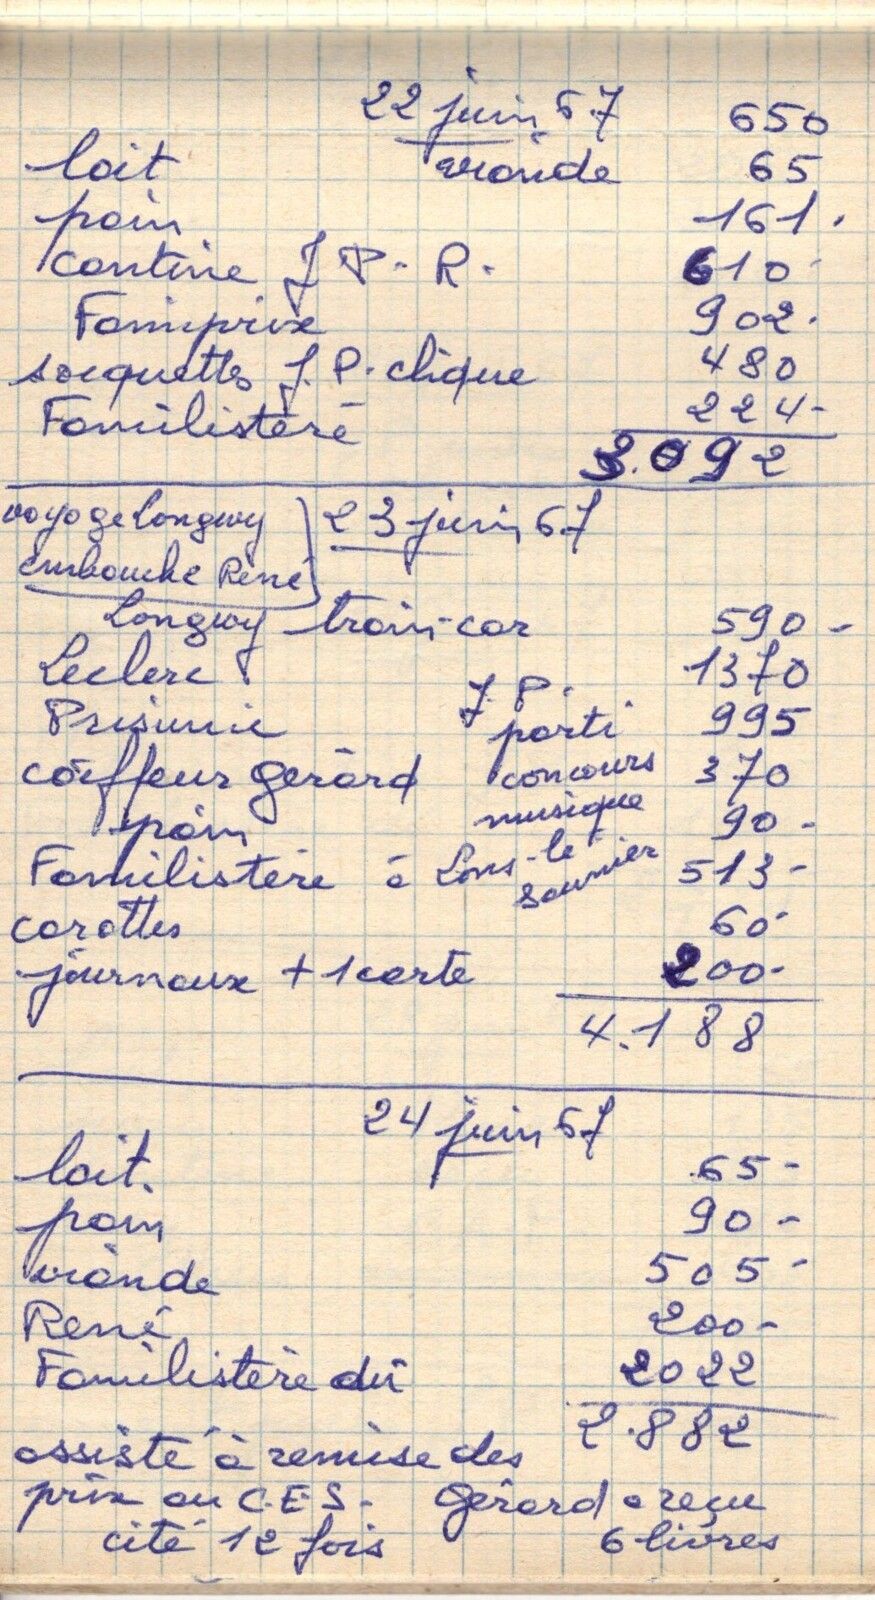 22 juin 67
viande 650
lait 65
pain 161.
cantine J P. R. 610
Familiprix 902.
socquettes J. P. clique 480
Familistère 224-
3.092
voyage Longwy
embauche René
23 juin 67
Longwy train-car 590-
Leclerc 1370
Prisunic 995
coiffeur gérard 370
pain 90-
Familistère 513-
carottes 60
journaux + 1 carte 200-
J. P.
parti
concours
musique
à Lons-le
Saunier
4.188
24 juin 67
lait. 65-
pain 90-
viande 505-
René 200-
Familistère dû 2022
2.882
assisté à remise des
prix au C.E.S. Gérard a reçu
cité 12 fois 6 livres